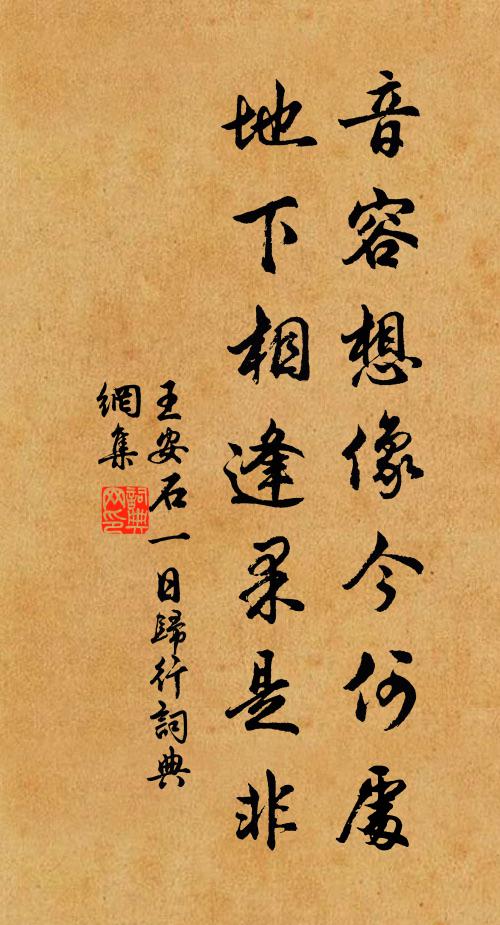 音容想像今何處
地下相逢果是非
王安石一日歸行詞典
網集
詞典
网印